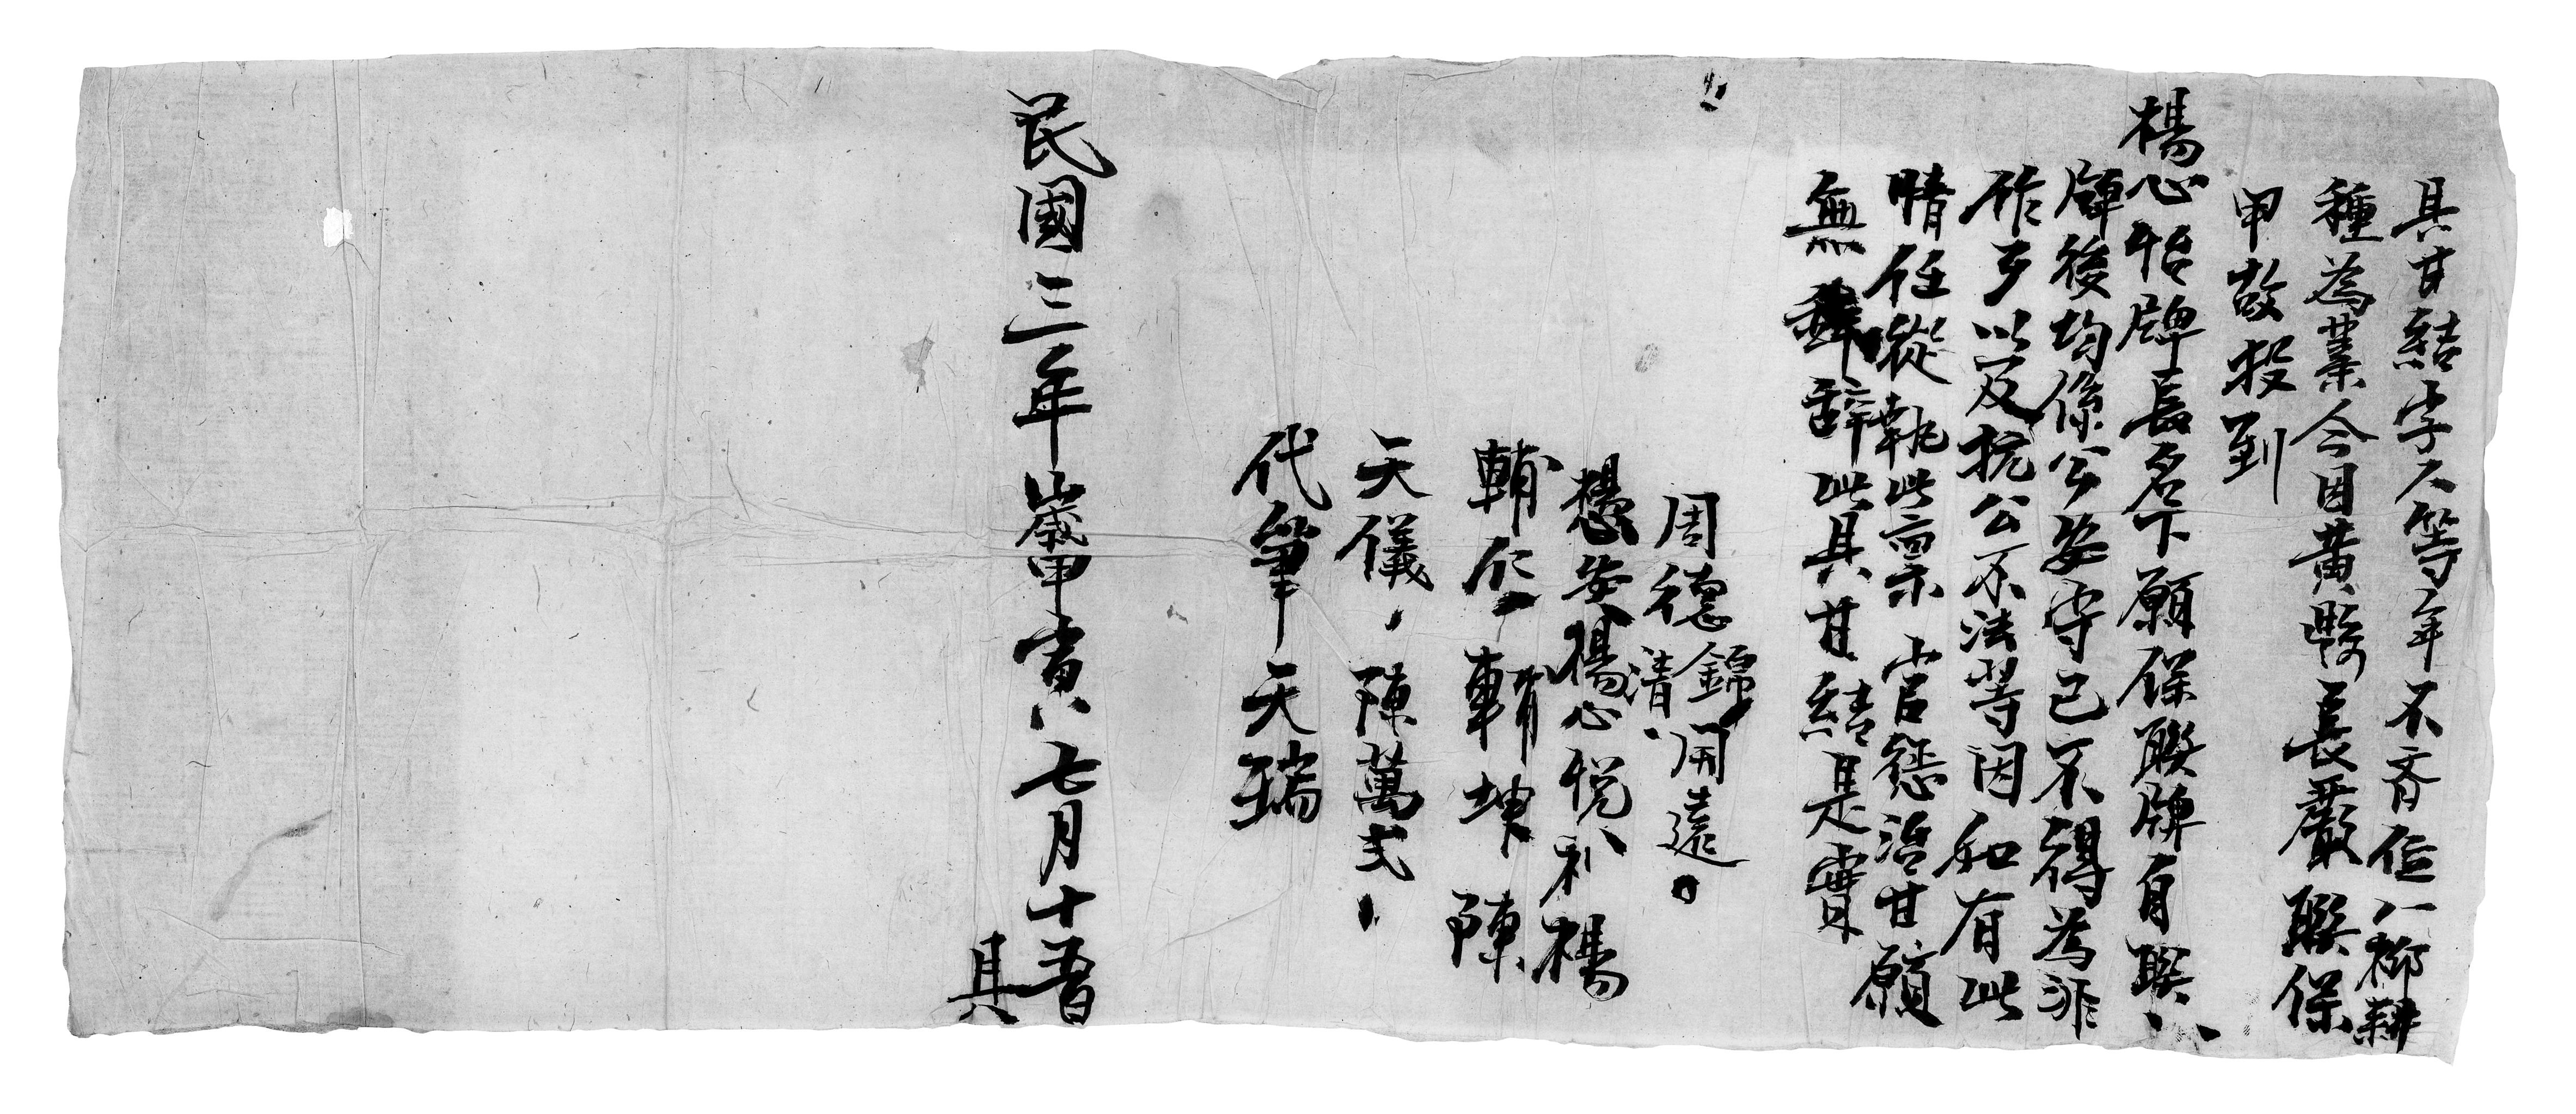 具甘結字人等年不齐住八都耕
種為業今因黄縣長嚴聯保
甲故投到
楊心怡牌長名下願保聯牌自聯
牌後均係公安守己不得為非
作歹以及抗公不法等因如有此
情任從執此禀示官惩治甘願
無辞此具甘結是實
周德錦開遠
清
楊心悦
輔仁輔坤陳
天儀陳萬弍
代筆天瑞
民國三年歲甲寅七月十五日
具